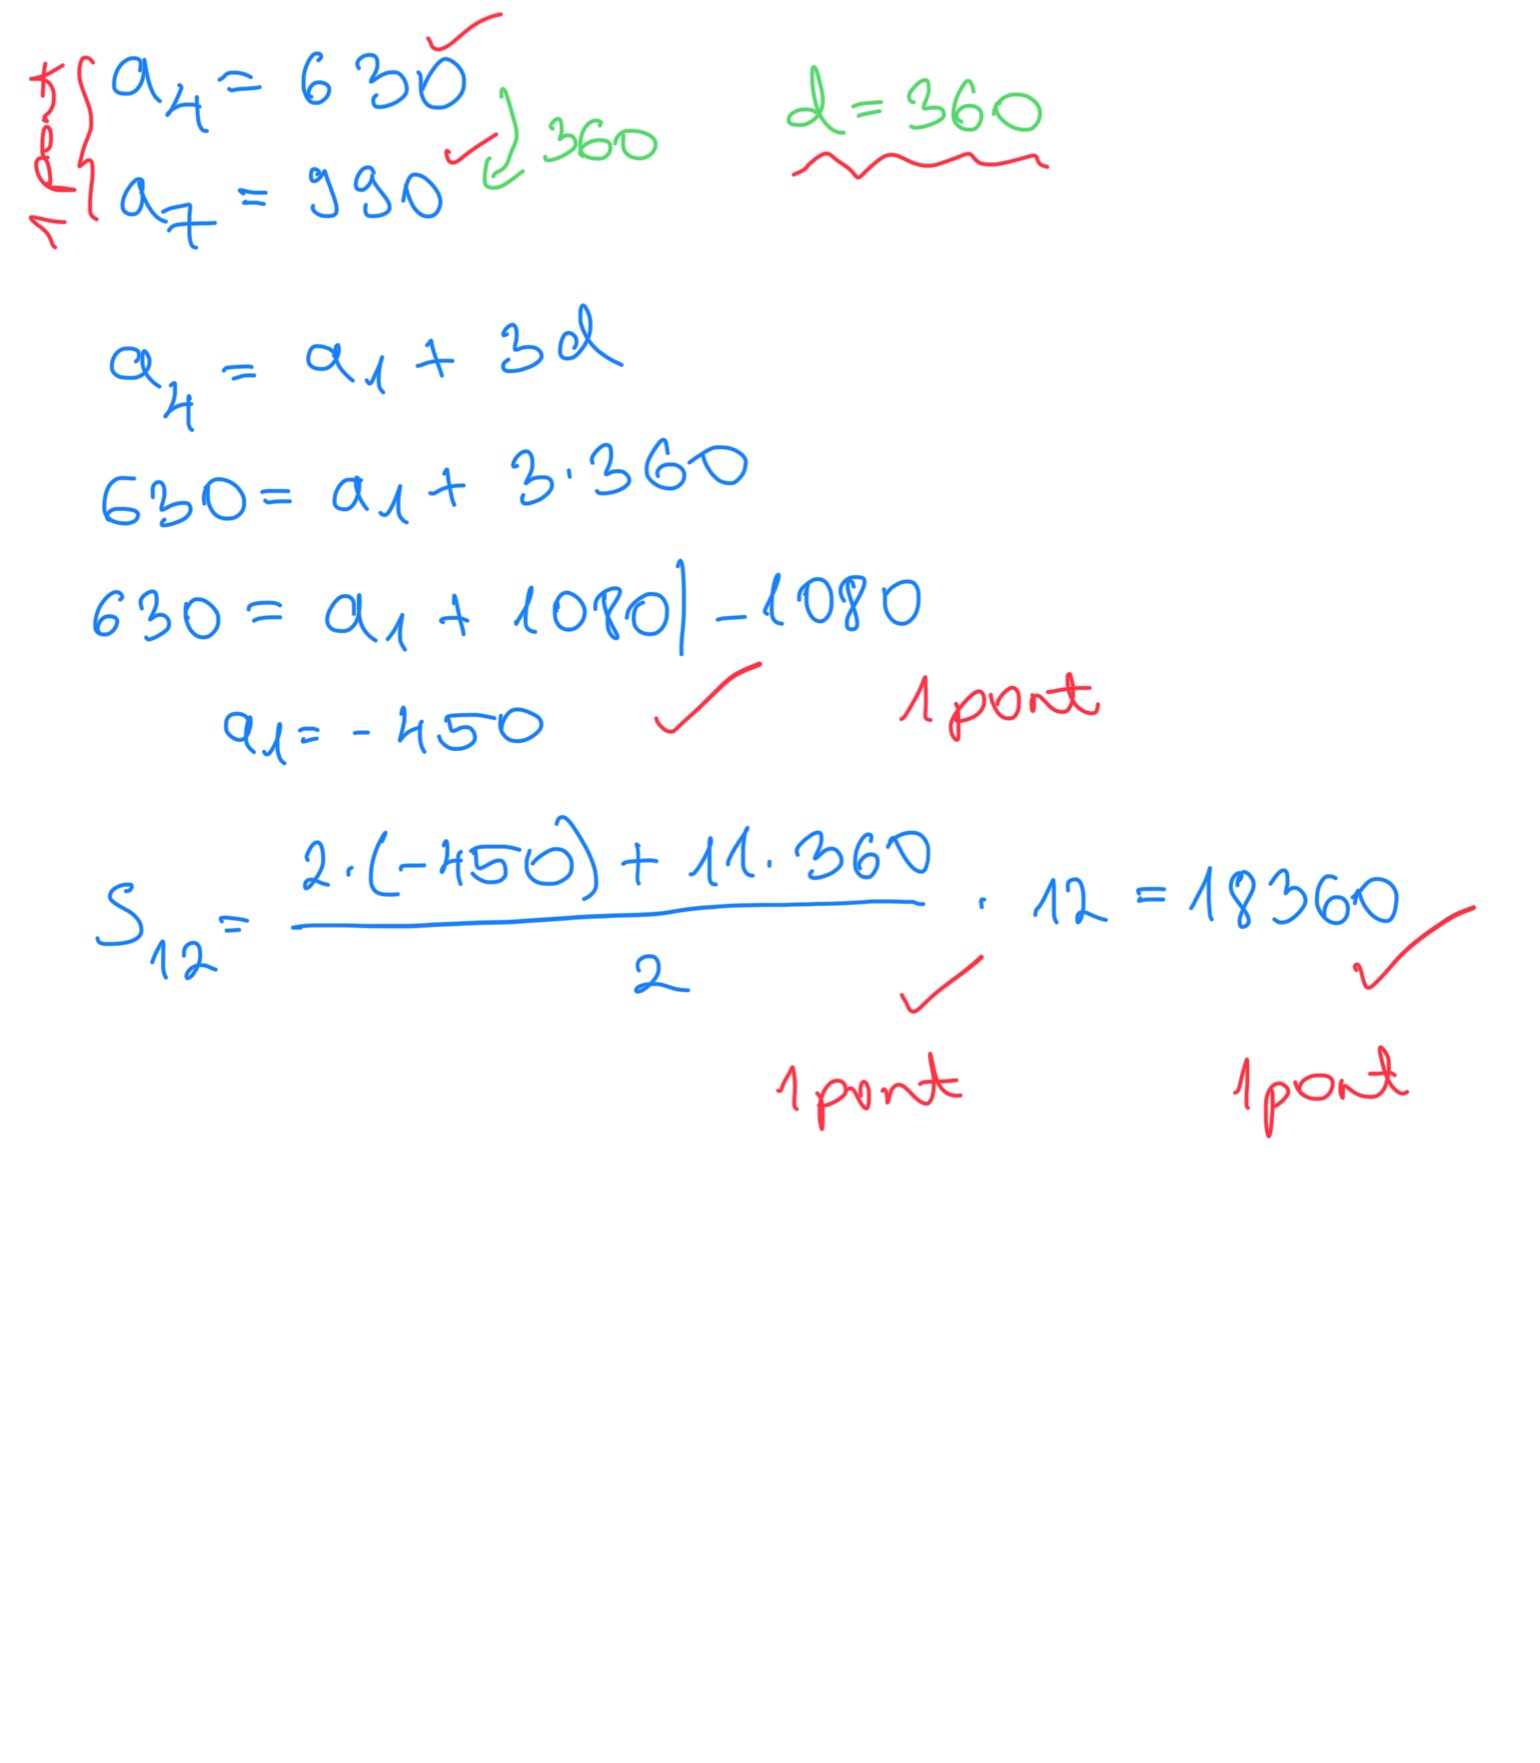 1 pont
a₄ = 630 ✓
360
d = 360
a₇ = 990 ✓
a₄ = a₁ + 3d
630 = a₁ + 3·360
630 = a₁ + 1080 | -1080
a₁ = -450 ✓ 1 pont
S₁₂ = (2·(-450) + 11·360)/2 · 12 = 18360
✓ ✓
1 pont 1 pont